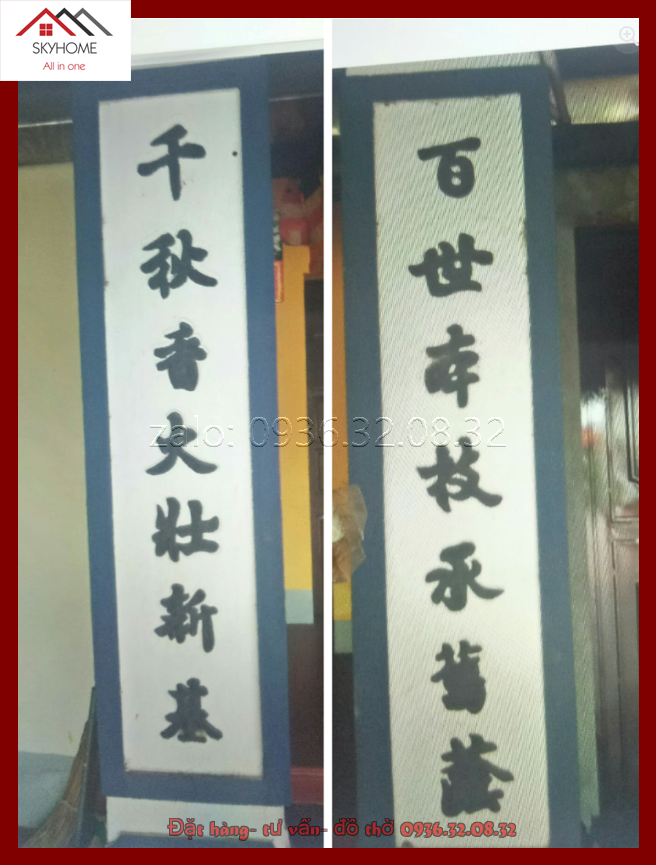 SKYHOME
All in one
千秋香火壯新基
百世本枝承舊蔭
zalo: 0936.32.08.32
Đặt hàng- tư vấn- đồ thờ 0936.32.08.32